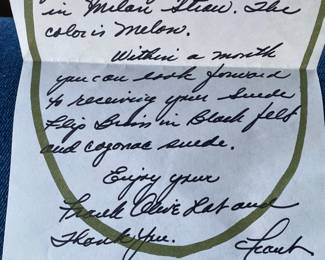 in Milan Straw. The
color is Melon.
Within a month
you can look forward
to receiving your Suede
Flip Brim in Black felt
and cognac suede.
Enjoy your
Frank Olive Hat and
Thank you.
Frank